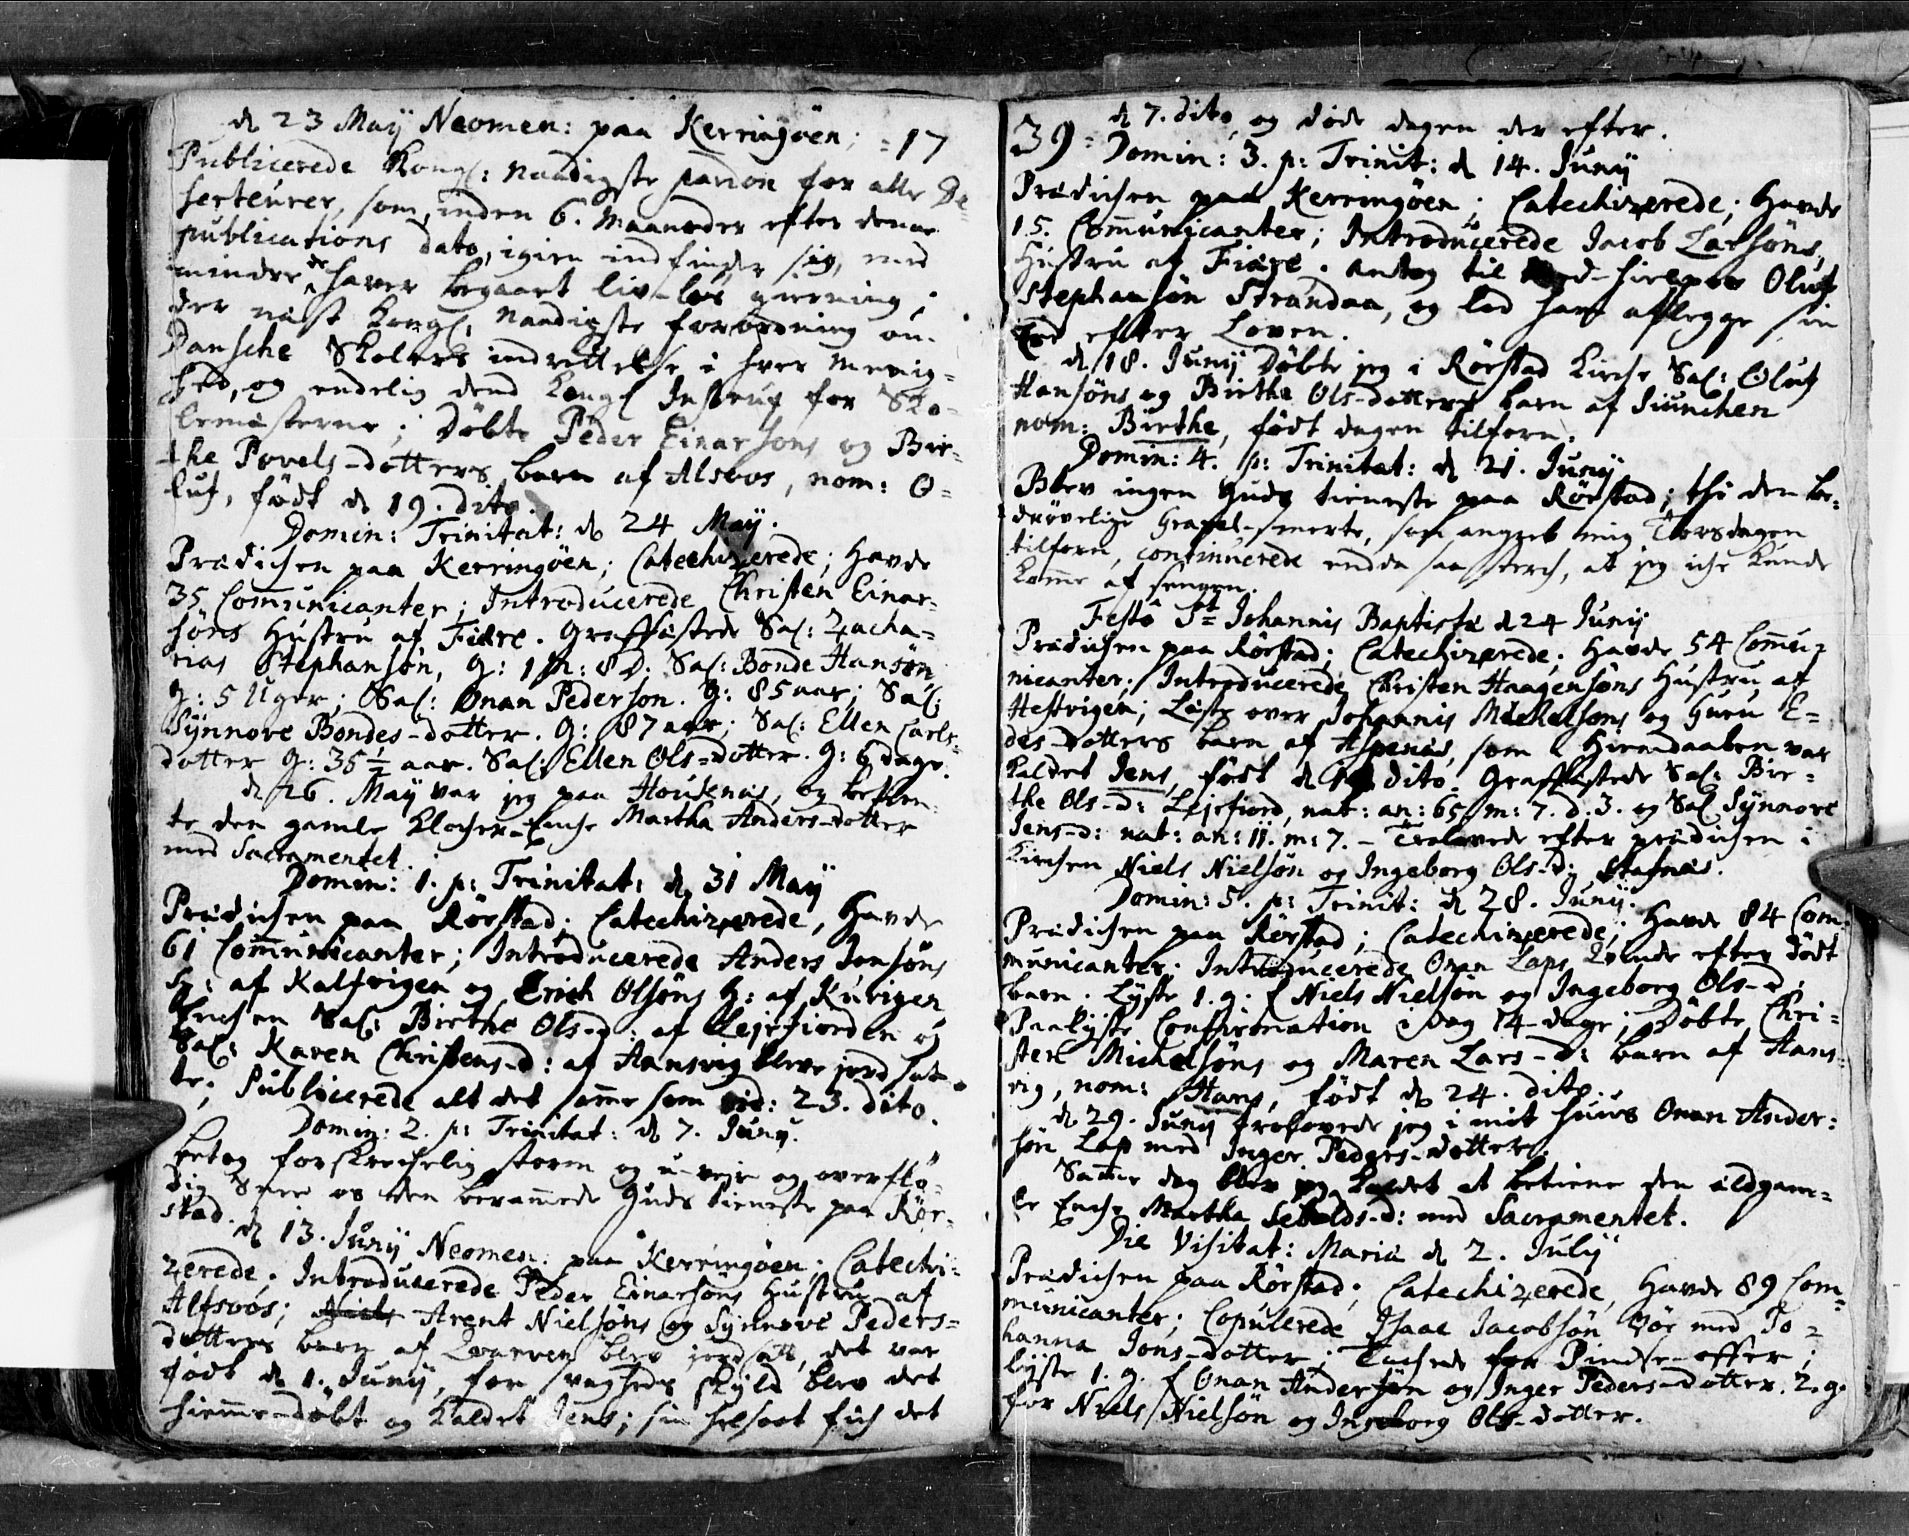 d 23 Maÿ Neomen: paa Kerringöen; =17
Publicerede Kongl: Naadigste pardon for alle De=
serteurer, som inden 6. Maaneder efter denne
publications dato, igien indfinder sig, med
mindre de haver begaaet liv-løs gierning;
der næst Kongl: Naadigste forordning an:
Dansche Skolers indrettelse i hver Menig=
hed, og endelig dend Kongl Instrux for Sko=
lemesterne; Döbte Peder Einarsöns og Bir=
the Povels-dotters barn af Alsvos, nom: O=
luf, født d 19. dito.
Domin: Trinitat: d 24 Maÿ.
Prædichen paa Kerringöen; Catechizerede; Havde
35 Communicanter; Introducerede Christen Einar=
söns Hustru af Fiære. Graffæstede Sal: Zacha=
rias Stephansön, G: 1 M: 8 D. Sal: Bonde Hansön
G: 5 Uger; Sal: Onan Pederson. G: 85 aar; Sal:
Sÿnnove Bondes-dotter. G: 87 aar; Sal: Ellen Carls=
dotter G: 36 ½ aar. Sal: Ellen Ols-dotter. G: 6 dage.
d 26. Maÿ var jeg paa Housenas, og betien=
te den gamle Klocher-Enche Martha Anders-dotter
med Sacramentet.
Domin: 1. p: Trinitat: d 31 Maÿ
Prædichen paa Rörstad; Catechizerede, Havde
61 Communicanter; Introducerede Anders Jonsöns
H: af Kalfvigen og Erich Olsöns H: af Kuvigen
Enchen Sal: Birthe Ols-d: af Lejefiorden og
Sal: Karen Christens-d: af Hansvig bleve jord sat=
te; Publicerede alt det samme som vid: 23. dito.
Domin: 2. p: Trinitat: d 7. Junÿ.
betog forskrechelig storm og u-veje og overflö=
dig Snee os den berammede Guds tieneste paa Rör=
stad.
d 13. Junÿ Neomen: paa Kerringöen; Catechi=
zerede; Introducerede Peder Einarsöns Hustru af
Alfsvos; Niels Arent Nielsöns og Sÿnnove Peders=
dotters barn af Qvarven blev jordsatt, det var
født d 1. Junÿ, for svagheds skÿld blev det
hiemme-døbt og kaldet Jens; sin helsoot fich det
39= d 7. dito, og döde dagen der efter.
Domin: 3. p: Trinit: d 14. Junÿ
Prædichen paa Kerringöen; Catechizerede; Havde
15. Communicanter; Introducerede Jacob Larsöns
Hustru af Fiære. antog til Med-hielper Oluf
Stephansön Strandaa, og lod ham aflegge sin
Eed efter Loven.
d 18. Junÿ Döbte jeg i Rörstad Kirche Sal: Oluf
Hansöns og Birthe Ols-dotters barn af Siunchen
nom: Birthe, født dagen tilforn.
Domin: 4. p: Trinitat: d 21. Junÿ
Blev ingen Guds tieneste paa Rörstad; thi den be=
drövelige Gravel-smerte, som angreb mig Torsdagen
tilforn, continuerede endda saa sterch, at jeg iche kunde
komme af sengen.
Festo St Johannis Baptistæ d 24 Junÿ
Prædichen paa Rörstad; Catechizerede; Havde 54 Commu=
nicanter; Introducerede Christen Haagensöns Hustru af
Hestvigen; Læste over Johannis Michelsöns og Guru E=
des-dotters barn af Aspenes, som i Hiemdaaben var
kaldet Jens, født d dito. Graffæstede Sal: Bir=
the Ols-d: Lejefiord, nat: an: 65 m: 7. d. 3. og Sal Sÿnnove
Jens-d: nat: an: 11. m: 7. – Trolovede efter prædichen i
Kirchen Niels Nielsön og Ingeborg Ols-d: Stafnæs.
Domin: 5. p: Trinit: d 28. Junÿ.
Prædichen paa Rörstad; Catechizerede; Havde 84 Com=
municanter; Introducerede Onan Laps Qvinde efter dödt
barn. Lÿste 1. g. f Niels Nielsön og Ingeborg Ols-d;
Paalÿste Confirmation i dag 14-dage; Döbte Chri=
sten Michelsöns og Maren Lars-d: barn af Hans=
vig, nom: Hans, født d 24. dito.
d 29. Junÿ trolovede jeg i mit Huus Onan Ander=
sön Lap med Inger Peders-dotter.
Samme dag blev jeg kaldet at betiene den ældgam=
le Enche Martha Sebalds-d: med Sacramentet.
Die Visitat: Mariæ d 2. Julÿ
Prædichen paa Rörstad; Catechizerede, Havde 89 Com=
municanter; Copulerede Isaac Jacobsön Bör med Jo=
hanna Jons-dotter; Tachede for Pindse-offer;
lÿste 1. g. f Onan Andersön og Inger Peders-dotter. 2. g.
for Niels Nielsön og Ingeborg Ols-dotter.